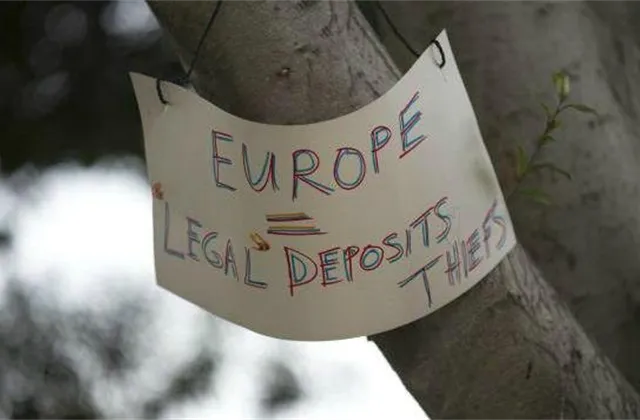 EUROPE
=
LEGAL DEPOSITS
THIEFS